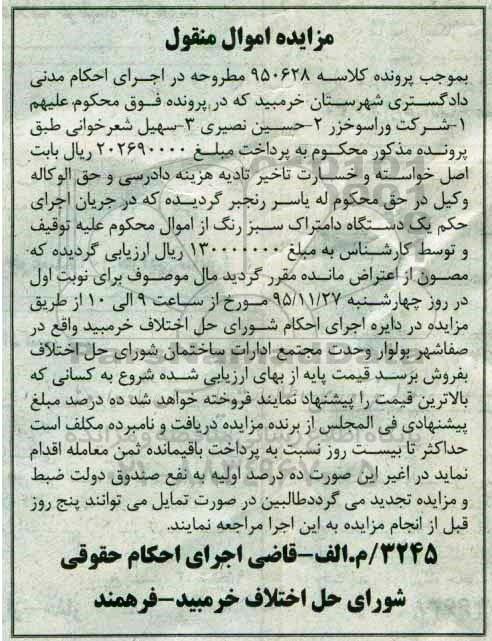 مزایده اموال منقول
بموجب پرونده کلاسه ۹۵۰۶۲۸ مطروحه در اجرای احکام مدنی
دادگستری شهرستان خرمبید که در پرونده فوق محکوم علیهم
۱-شرکت وراسوخزر ۲-حسین نصیری ۳-سهیل شعرخوانی طبق
پرونده مذکور محکوم به پرداخت مبلغ ۲۰۲۶۹۰۰۰۰ ریال بابت
اصل خواسته و خسارت تاخیر تادیه هزینه دادرسی و حق الوکاله
وکیل در حق محکوم له یاسر رنجبر گردیده که در جریان اجرای
حکم یک دستگاه دامتراک سبز رنگ از اموال محکوم علیه توقیف
و توسط کارشناس به مبلغ ۱۳۰۰۰۰۰۰۰۰ ریال ارزیابی گردیده که
مصون از اعتراض مانده مقرر گردید مال موصوف برای نوبت اول
در روز چهارشنبه ۹۵/۱۱/۲۷ مورخ از ساعت ۹ الی ۱۰ از طریق
مزایده در دایره اجرای احکام شورای حل اختلاف خرمبید واقع در
صفاشهر بولوار وحدت مجتمع ادارات ساختمان شورای حل اختلاف
بفروش برسد قیمت پایه از بهای ارزیابی شده شروع به کسانی که
بالاترین قیمت را پیشنهاد نمایند فروخته خواهد شد ده درصد مبلغ
پیشنهادی فی المجلس از برنده مزایده دریافت و نامبرده مکلف است
حداکثر تا بیست روز نسبت به پرداخت باقیمانده ثمن معامله اقدام
نماید در اغیر این صورت ده درصد اولیه به نفع صندوق دولت ضبط
و مزایده تجدید می گرددطالبین در صورت تمایل می توانند پنج روز
قبل از انجام مزایده به این اجرا مراجعه نمایند.
۳۲۴۵/م.الف-قاضی اجرای احکام حقوقی
شورای حل اختلاف خرمبید-فرهمند